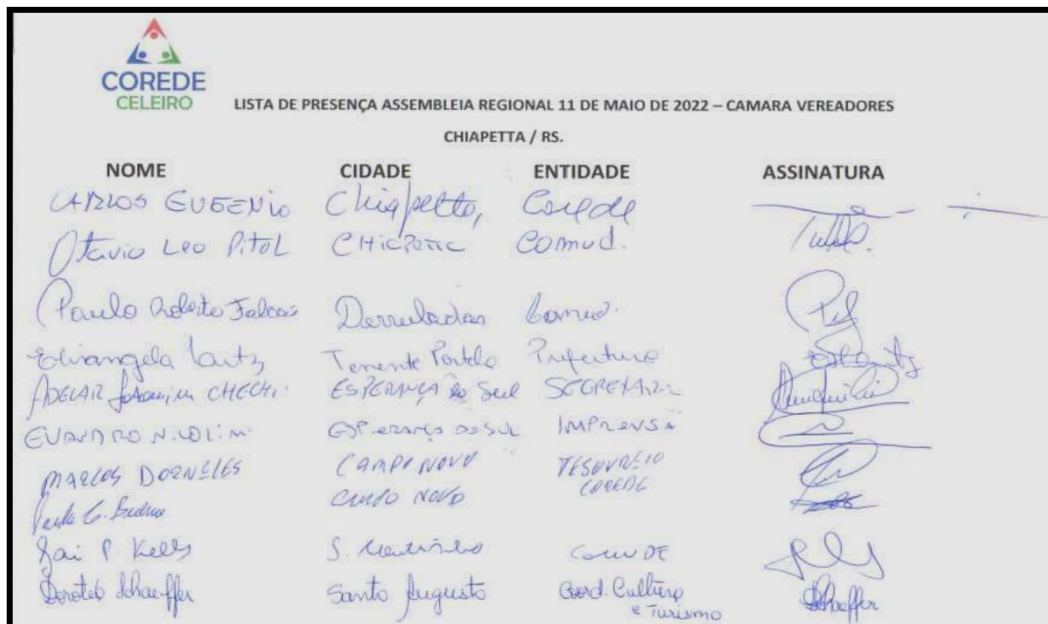 COREDE
CELEIRO
LISTA DE PRESENÇA ASSEMBLEIA REGIONAL 11 DE MAIO DE 2022 – CAMARA VEREADORES
CHIAPETTA / RS.
NOME CIDADE ENTIDADE ASSINATURA
CARLOS EUGENIO Chiapetta, Corede
Otavio Leo Pitol CHIAPETTA Comud.
Paulo Roberto Falcão Derrubadas Comud.
Elisangela Tenente Portela Prefeitura
ADELAR CHECHI ESPERANÇA do Sul SECRETARIA
EVANDRO NICOLINI ESPERANÇA DO SUL IMPRENSA
MARCOS DORNELES CAMPO NOVO TESOUREIO COREDE
CAMPO NOVO
P. Kelly S. Martinho ComUDE
Schaeffer Santo Augusto Coord. Cultura e Turismo Schaeffer